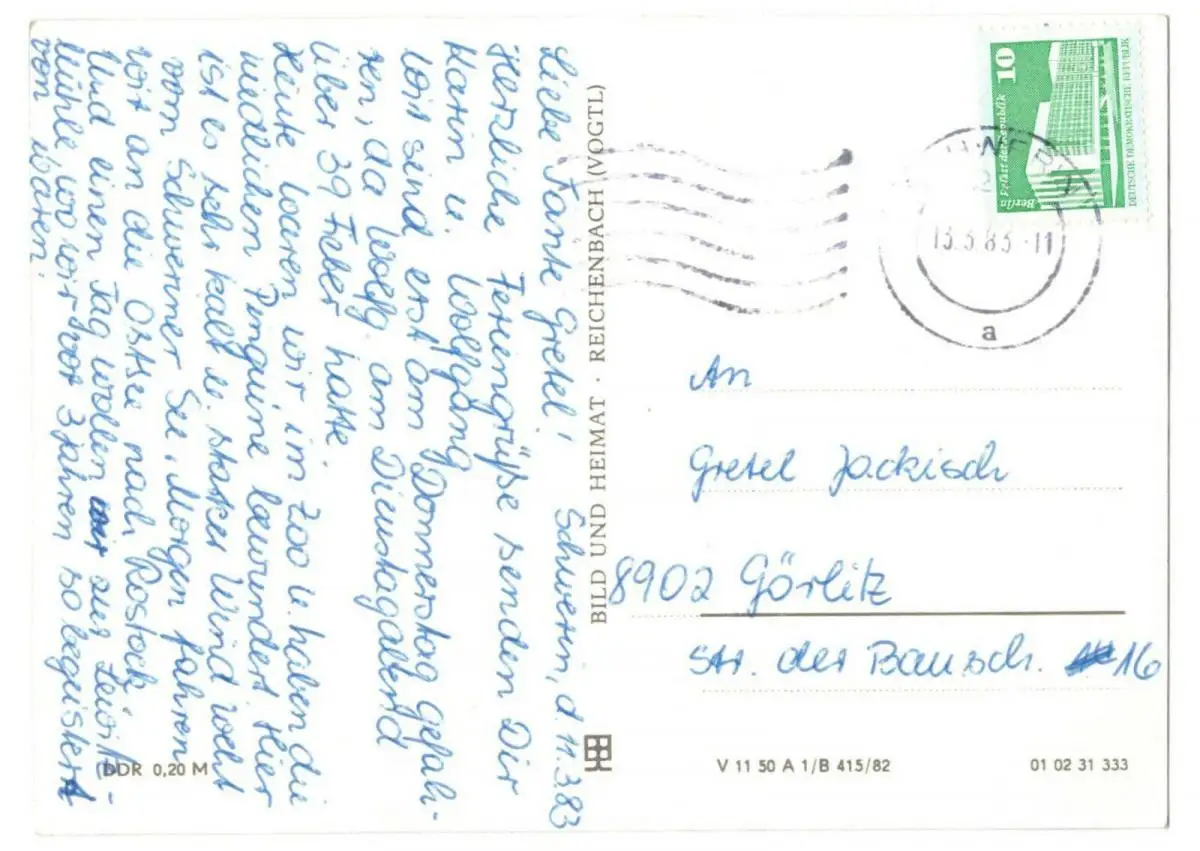 Liebe Tante Gretel! Schwerin, d. 11.3.83
Herzliche Feriengrüße senden Dir
Karin u. Wolfgang
wir sind erst am Donnerstag gefah-
ren, da Wolfg. am Dienstagabend
über 39 Fieber hatte.
Heute waren wir im Zoo u. haben die
niedlichen Pinguine bewundert. Hier
ist es sehr kalt u. starker Wind weht
vom Schweriner See. Morgen fahren
wir an die Ostsee nach Rostock
Und einen Tag wollen wir zur
mühle, wo wir vor 3 Jahren so begeistert
von waren.
BILD UND HEIMAT · REICHENBACH (VOGTL)
DDR 0,20 M
10
Palast der Republik
Berlin
DEUTSCHE DEMOKRATISCHE REPUBLIK
13.3.83-11
a
An
Gretel Jackisch
8902 Görlitz
Str. der Bausch. 16
V 11 50 A 1/B 415/82
01 02 31 333